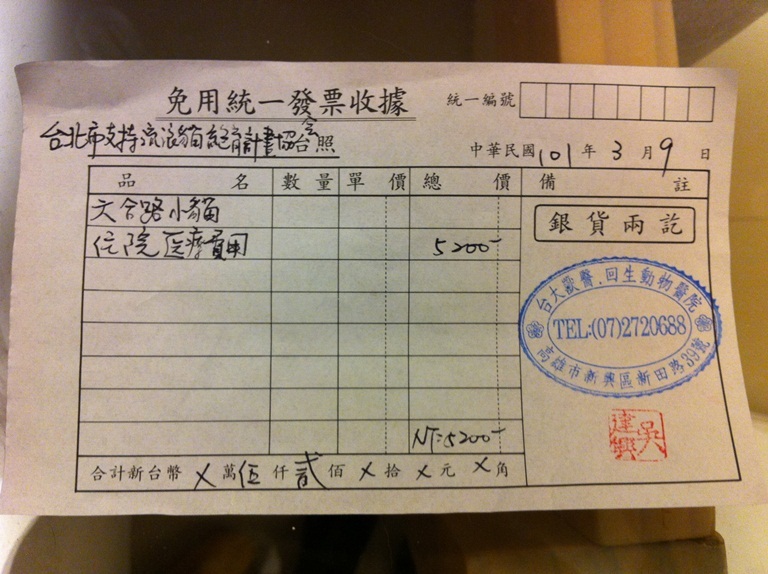 免用統一發票收據
統一編號
台北市支持流浪貓絕育計畫協會 台照
中華民國 101 年 3 月 9 日
品名 數量 單價 總價 備註
六合路小貓
住院医療費用 5200-
銀貨兩訖
台大獸醫.回生動物醫院
TEL:(07)2720688
高雄市新興區新田路39號
NT:5200-
吳達興
合計新台幣 X 萬 伍 仟 貳 佰 X 拾 X 元 X 角